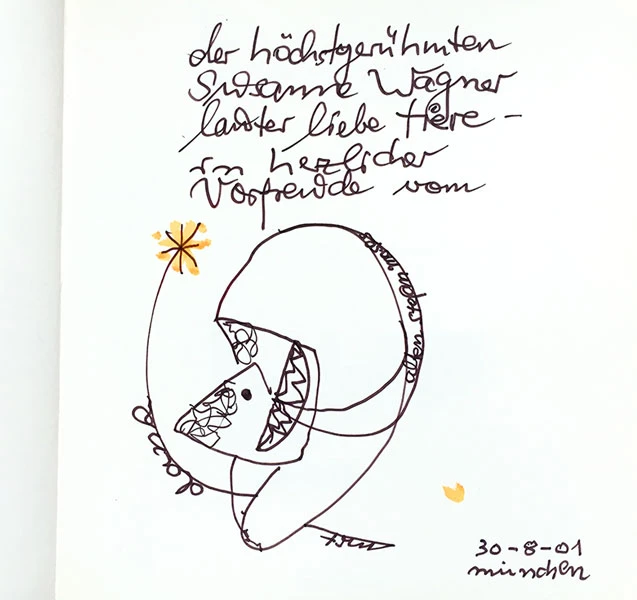 der höchstgerühmten
Susanne Wagner
lauter liebe tiere –
in herzlicher
Vorfreude vom
ganz
30-8-01
münchen